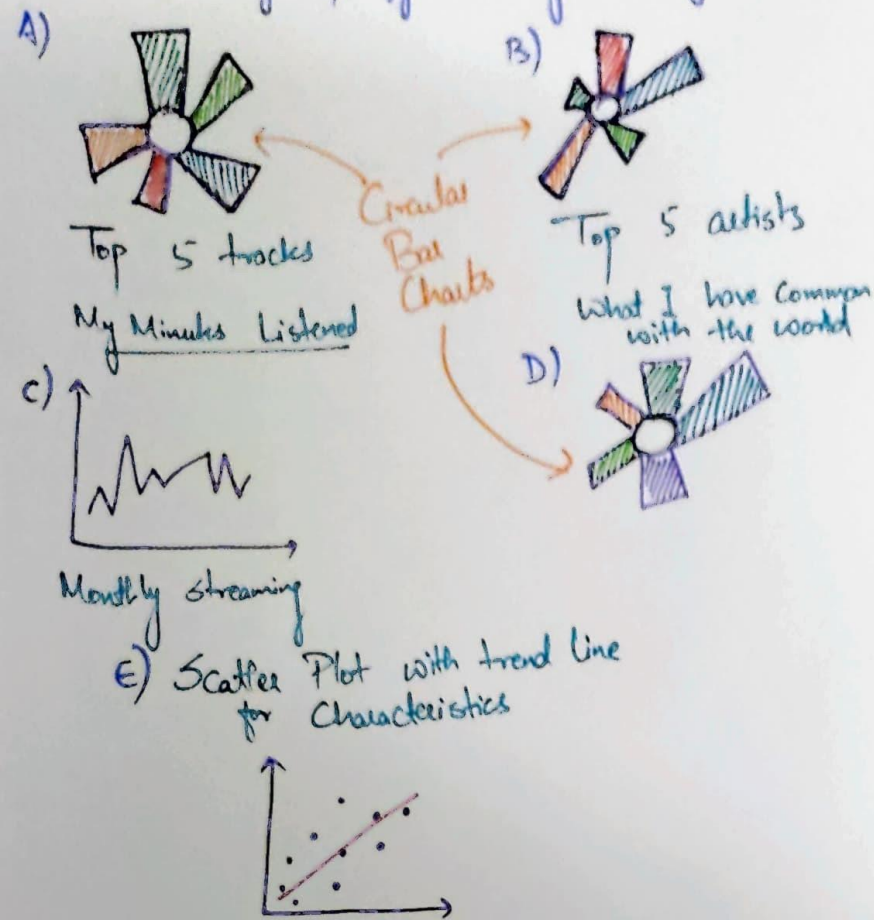 A)
B)
Circular
Bar
Charts
Top 5 tracks
Top 5 artists
My Minutes Listened
What I have Common
with the world
C)
D)
Monthly streaming
E) Scatter Plot with trend line
for Characteristics